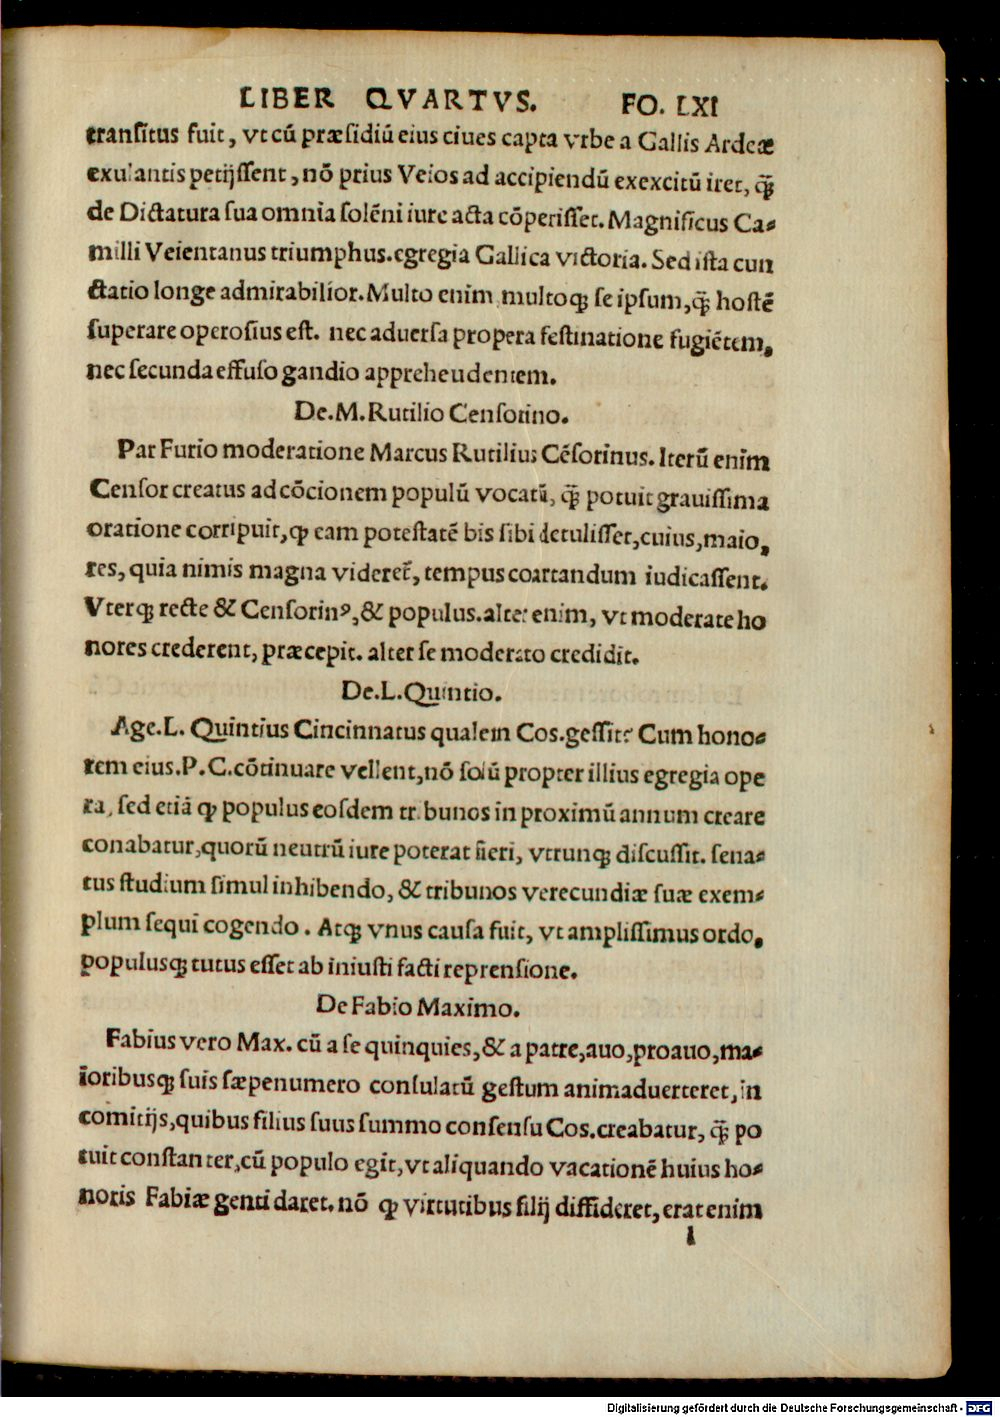 LIBER QVARTVS. FO. LXI
transitus fuit, vt cū præsidiū eius ciues capta vrbe a Gallis Ardeæ
exulantis petijssent, nō prius Veios ad accipiendū exexcitū iret, q̃
de Dictatura sua omnia solēni iure acta cōperisset. Magnificus Ca-
milli Veientanus triumphus. egregia Gallica victoria. Sed ista cun
ctatio longe admirabilior. Multo enim multoq; se ipsum, q̃ hostē
superare operosius est. nec aduersa propera festinatione fugiētem,
nec secunda effuso gandio appreheudentem.
De. M. Rutilio Censorino.
Par Furio moderatione Marcus Rutilius Cēsorinus. Iterū enim
Censor creatus ad cōcionem populū vocatū, q̃ potuit grauissima
oratione corripuit, ꝙ eam potestatē bis sibi detulisset, cuius, maio,
res, quia nimis magna videret̃, tempus coartandum iudicassent.
Vterq; recte & Censorinꝰ, & populus. alter enim, vt moderate ho
nores crederent, præcepit. alter se moderato credidit.
De. L. Quintio.
Age. L. Quintius Cincinnatus qualem Cos. gessit? Cum hono-
rem eius. P. C. cōtinuare vellent, nō solū propter illius egregia ope
ra, sed etiā ꝙ populus eosdem tribunos in proximū annum creare
conabatur, quorū neutrū iure poterat fieri, vtrunq; discussit. sena-
tus studium simul inhibendo, & tribunos verecundiæ suæ exem-
plum sequi cogendo. Atq; vnus causa fuit, vt amplissimus ordo,
populusq; tutus esset ab iniusti facti reprensione.
De Fabio Maximo.
Fabius vero Max. cū a se quinquies, & a patre, auo, proauo, ma-
ioribusq; suis sæpenumero consulatū gestum animaduerteret, in
comitijs, quibus filius suus summo consensu Cos. creabatur, q̃ po
tuit constanter, cū populo egit, vt aliquando vacationē huius ho-
noris Fabiæ genti daret. nō ꝙ virtutibus filij diffideret, erat enim
l
Digitalisierung gefördert durch die Deutsche Forschungsgemeinschaft - DFG